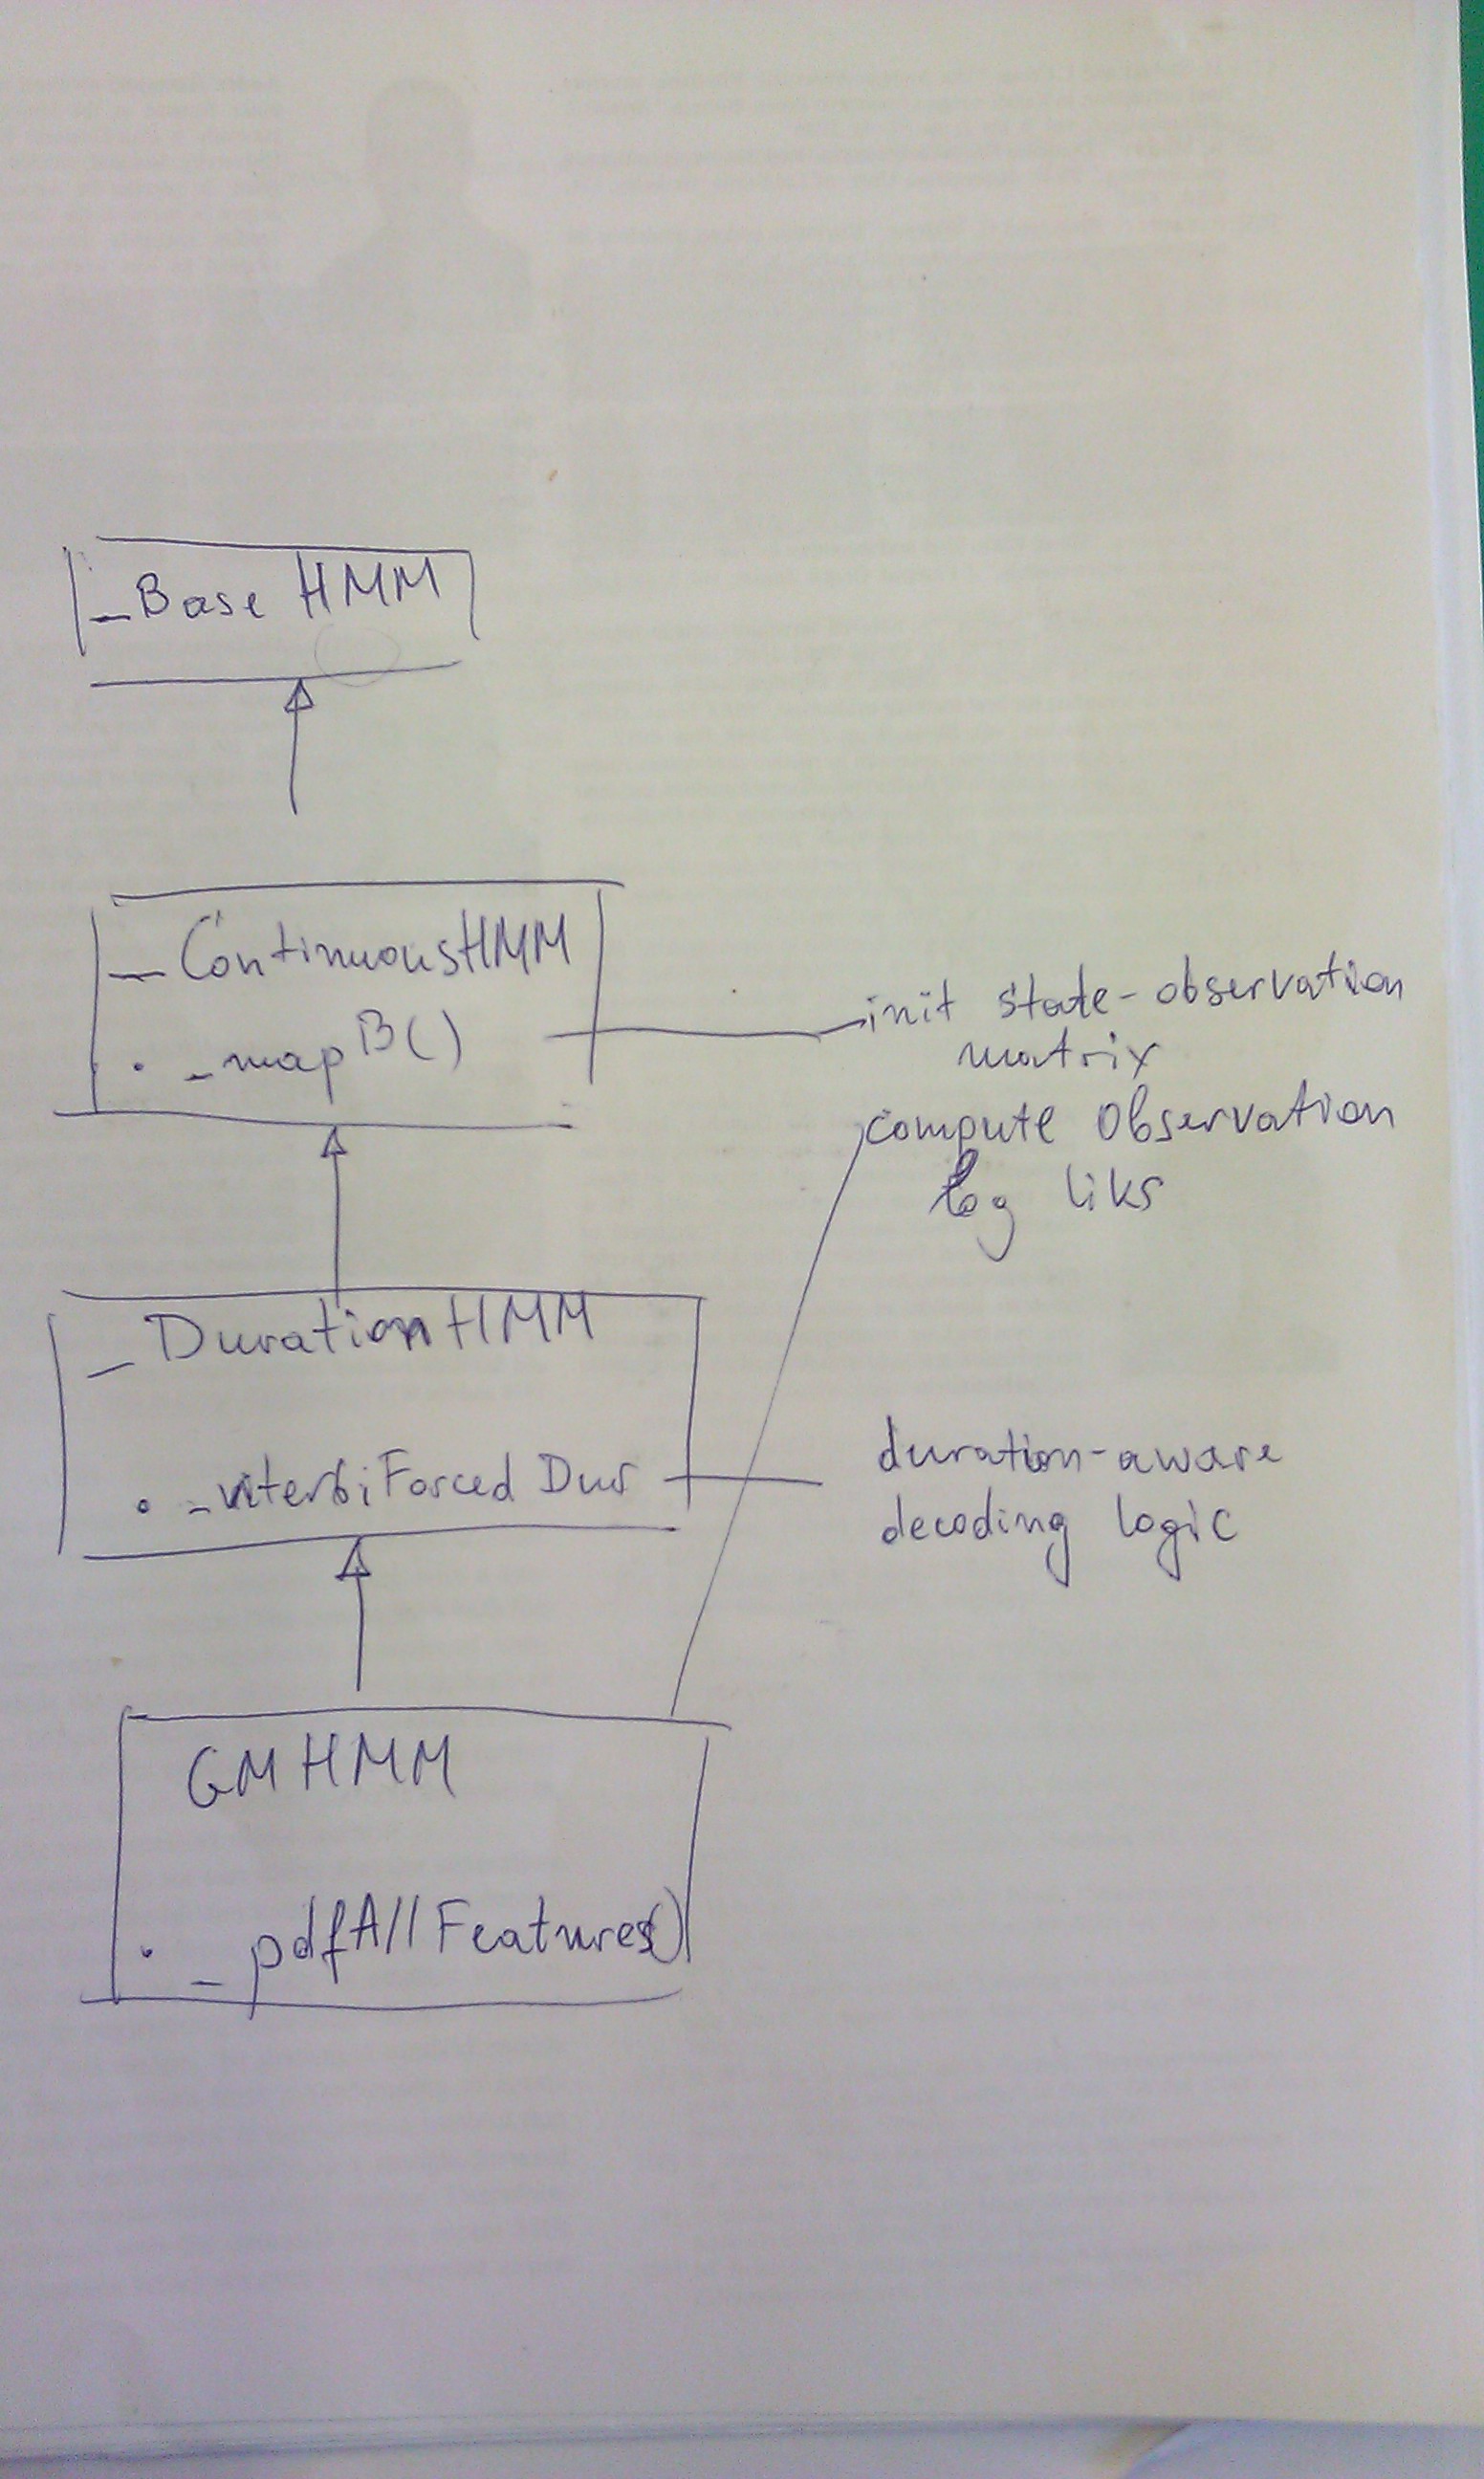 _Base HMM
_ContinuousHMM
• _mapB()
init state-observation
matrix
compute observation
log liks
_DurationHMM
• _viterbiForcedDur
duration-aware
decoding logic
GMHMM
• _pdfAllFeatures()